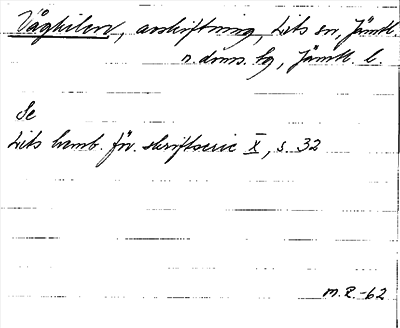 Vägkilen, avskiftning, Lits sn, Jämtl.
n. doms. tg, Jämtl. l.
Se
Lits hemb. för. skriftserie X, s. 32
M.R.-62